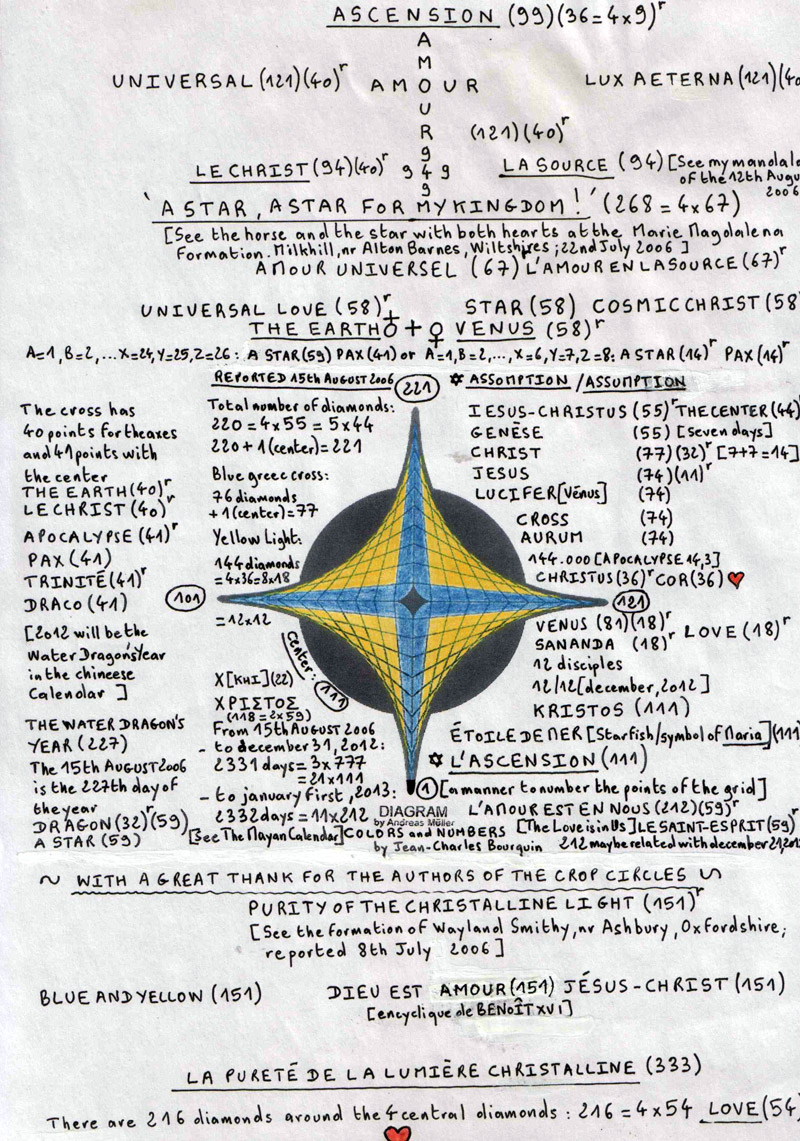 ASCENSION (99)(36=4x9)r
A
M
UNIVERSAL (121)(40)r AMOUR LUX AETERNA (121)(40
U
R (121)(40)r
LE CHRIST (94)(40)r 9 4 9 LA SOURCE (94) [See my mandala
9
of the 12th Augu
2006
'A STAR, A STAR FOR MY KINGDOM!' (268=4x67)
[See the horse and the star with both hearts at the Marie Magdalena
Formation. Milkhill, nr Alton Barnes, Wiltshires; 22nd July 2006]
AMOUR UNIVERSEL (67) L'AMOUR EN LA SOURCE (67)r
UNIVERSAL LOVE (58)r STAR (58) COSMIC CHRIST (58
THE EARTH ♁ + ♀ VENUS (58)r
A=1, B=2, ...X=24, Y=25, Z=26: A STAR (59) PAX (41) or A=1, B=2, ..., X=6, Y=7, Z=8: A STAR (14)r PAX (14)r
REPORTED 15th AUGUST 2006 221 ✡ ASSUMPTION / ASSUMPTION
The cross has
40 points for the axes
and 41 points with
the center
THE EARTH (40)r
LE CHRIST (40)r
APOCALYPSE (41)r
PAX (41)
TRINITÉ (41)r
DRACO (41)
[2012 will be the
Water Dragon's Year
in the chineese
Calendar]
THE WATER DRAGON'S
YEAR (227)
The 15th AUGUST 2006
is the 227th day of
the year
DRAGON (32)r(59)
A STAR (59)
Total number of diamonds:
220 = 4x55 = 5x44
220+1(center) = 221
Blue greec cross:
76 diamonds
+1(center)=77
Yellow Light:
144 diamonds
=4x36=8x18
=12x12
101
121
center: 111
X [KHI] (22)
ΧΡΙΣΤΟΣ
(118=2x59)
From 15th AUGUST 2006
- to december 31, 2012:
2331 days = 3x777
= 21x111
- to january first, 2013:
2332 days = 11x212
[See The Mayan Calendar]
IESUS-CHRISTUS (55)r THE CENTER (44)
GENÈSE (55) [Seven days]
CHRIST (77)(32)r [7+7=14]
JESUS (74)(11)r
LUCIFER [Vénus] (74)
CROSS (74)
AURUM (74)
144.000 [APOCALYPSE 14,3]
CHRISTUS (36)r COR (36)
VENUS (81)(18)r LOVE (18)r
SANANDA (18)r
12 disciples
12/12 [december, 2012]
KRISTOS (111)
ÉTOILE DE MER [Starfish/symbol of Maria] (111
✡ L'ASCENSION (111)
1 [a manner to number the points of the grid]
DIAGRAM
by Andreas Müller
COLORS and NUMBERS
by Jean-Charles Bourquin
L'AMOUR EST EN NOUS (212)(59)r
[The Love is in Us] LE SAINT-ESPRIT (59)r
212 may be related with december 21, 2012
~ WITH A GREAT THANK FOR THE AUTHORS OF THE CROP CIRCLES ~
PURITY OF THE CHRISTALLINE LIGHT (151)r
[See the formation of Wayland Smithy, nr Ashbury, Oxfordshire;
reported 8th July 2006]
BLUE AND YELLOW (151) DIEU EST AMOUR (151) JÉSUS-CHRIST (151)
[encyclique de BENOÎT XVI]
LA PURETÉ DE LA LUMIÈRE CHRISTALLINE (333)
There are 216 diamonds around the 4 central diamonds: 216 = 4x54 LOVE (54